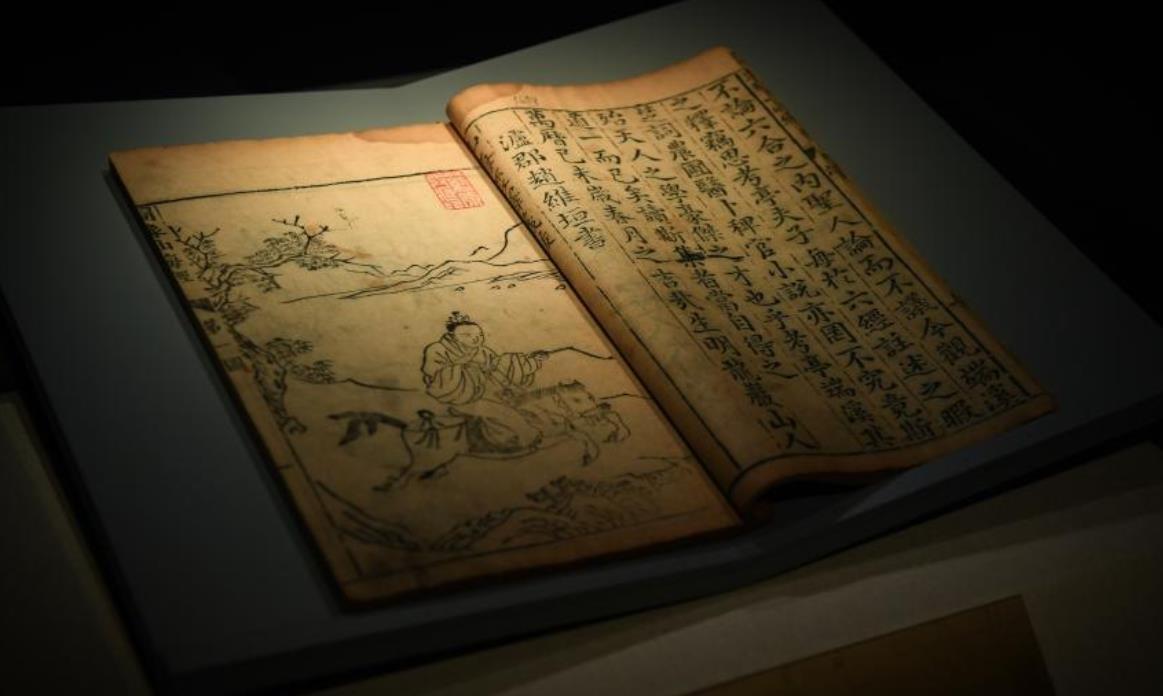 不論六合之內聖人論而不議今觀端溪
之釋竊思考亭夫子每於六經註述之暇
楚詞農圃醫卜稗官小說亦罔不究竟斯
殆天人之學豪傑之才也乎考亭端溪其
道一而已矣讀斯集者當自得之
萬曆己未歲春月之吉哉生明龍巖山人
瀘郡趙維垣書